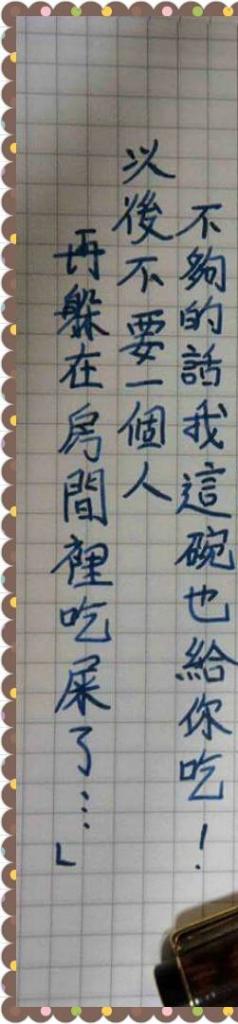 不夠的話我這碗也給你吃！
以後不要一個人
再躲在房間裡吃屎了…」